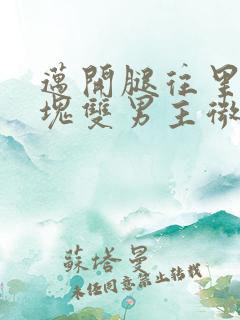 邁開腿往里
塊雙男主微
蘇塔曼
未经同意禁止转载